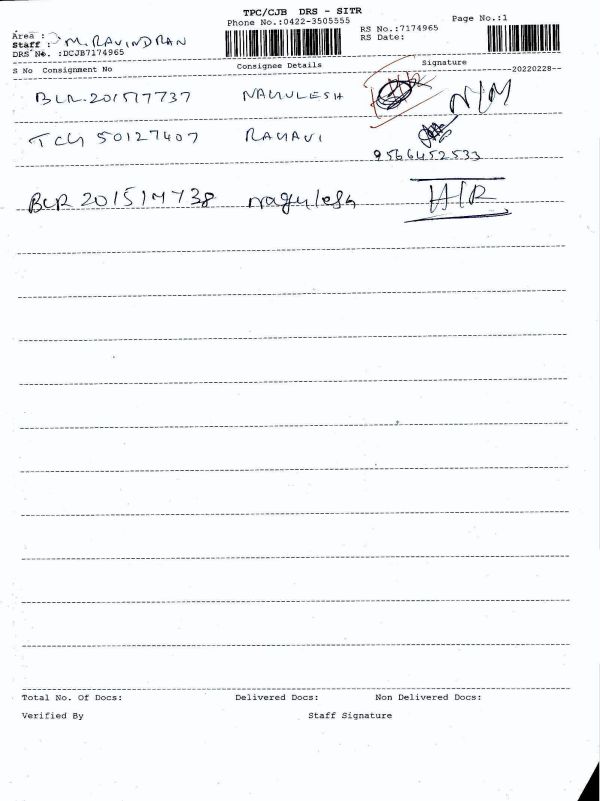 TPC/CJB DRS - SITR
Phone No.:0422-3505555
Page No.:1
Area :
RS No.:7174965
Staff : M.RAVINDRAN
RS Date:
DRS No. :DCJB7174965
S No Consignment No Consignee Details Signature
--20220228--
BLR.201517737 NAGULESH N/M
TCG 50127407 RAGAVI
9566452533
BLR 201517738 nagulesh H/R
Total No. Of Docs: Delivered Docs: Non Delivered Docs:
Verified By Staff Signature